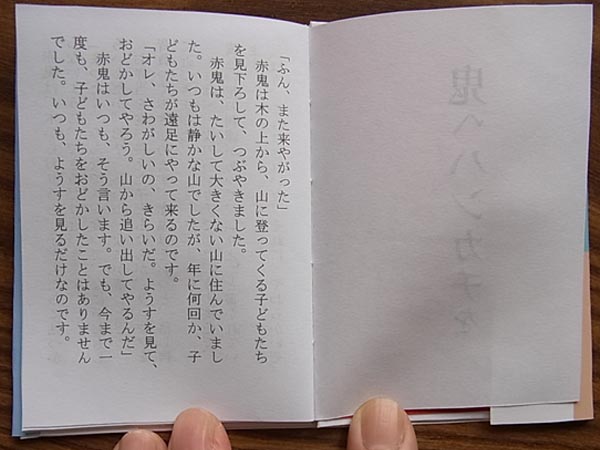 鬼へハンカチを
「ふん、また来やがった」
赤鬼は木の上から、山に登ってくる子どもたち
を見下ろして、つぶやきました。
赤鬼は、たいして大きくない山に住んでいまし
た。いつもは静かな山でしたが、年に何回か、子
どもたちが遠足にやって来るのです。
「オレ、さわがしいの、きらいだ。ようすを見て、
おどかしてやろう。山から追い出してやるんだ」
赤鬼はいつも、そう言います。でも、今まで一
度も、子どもたちをおどかしたことはありません
でした。いつも、ようすを見るだけなのです。